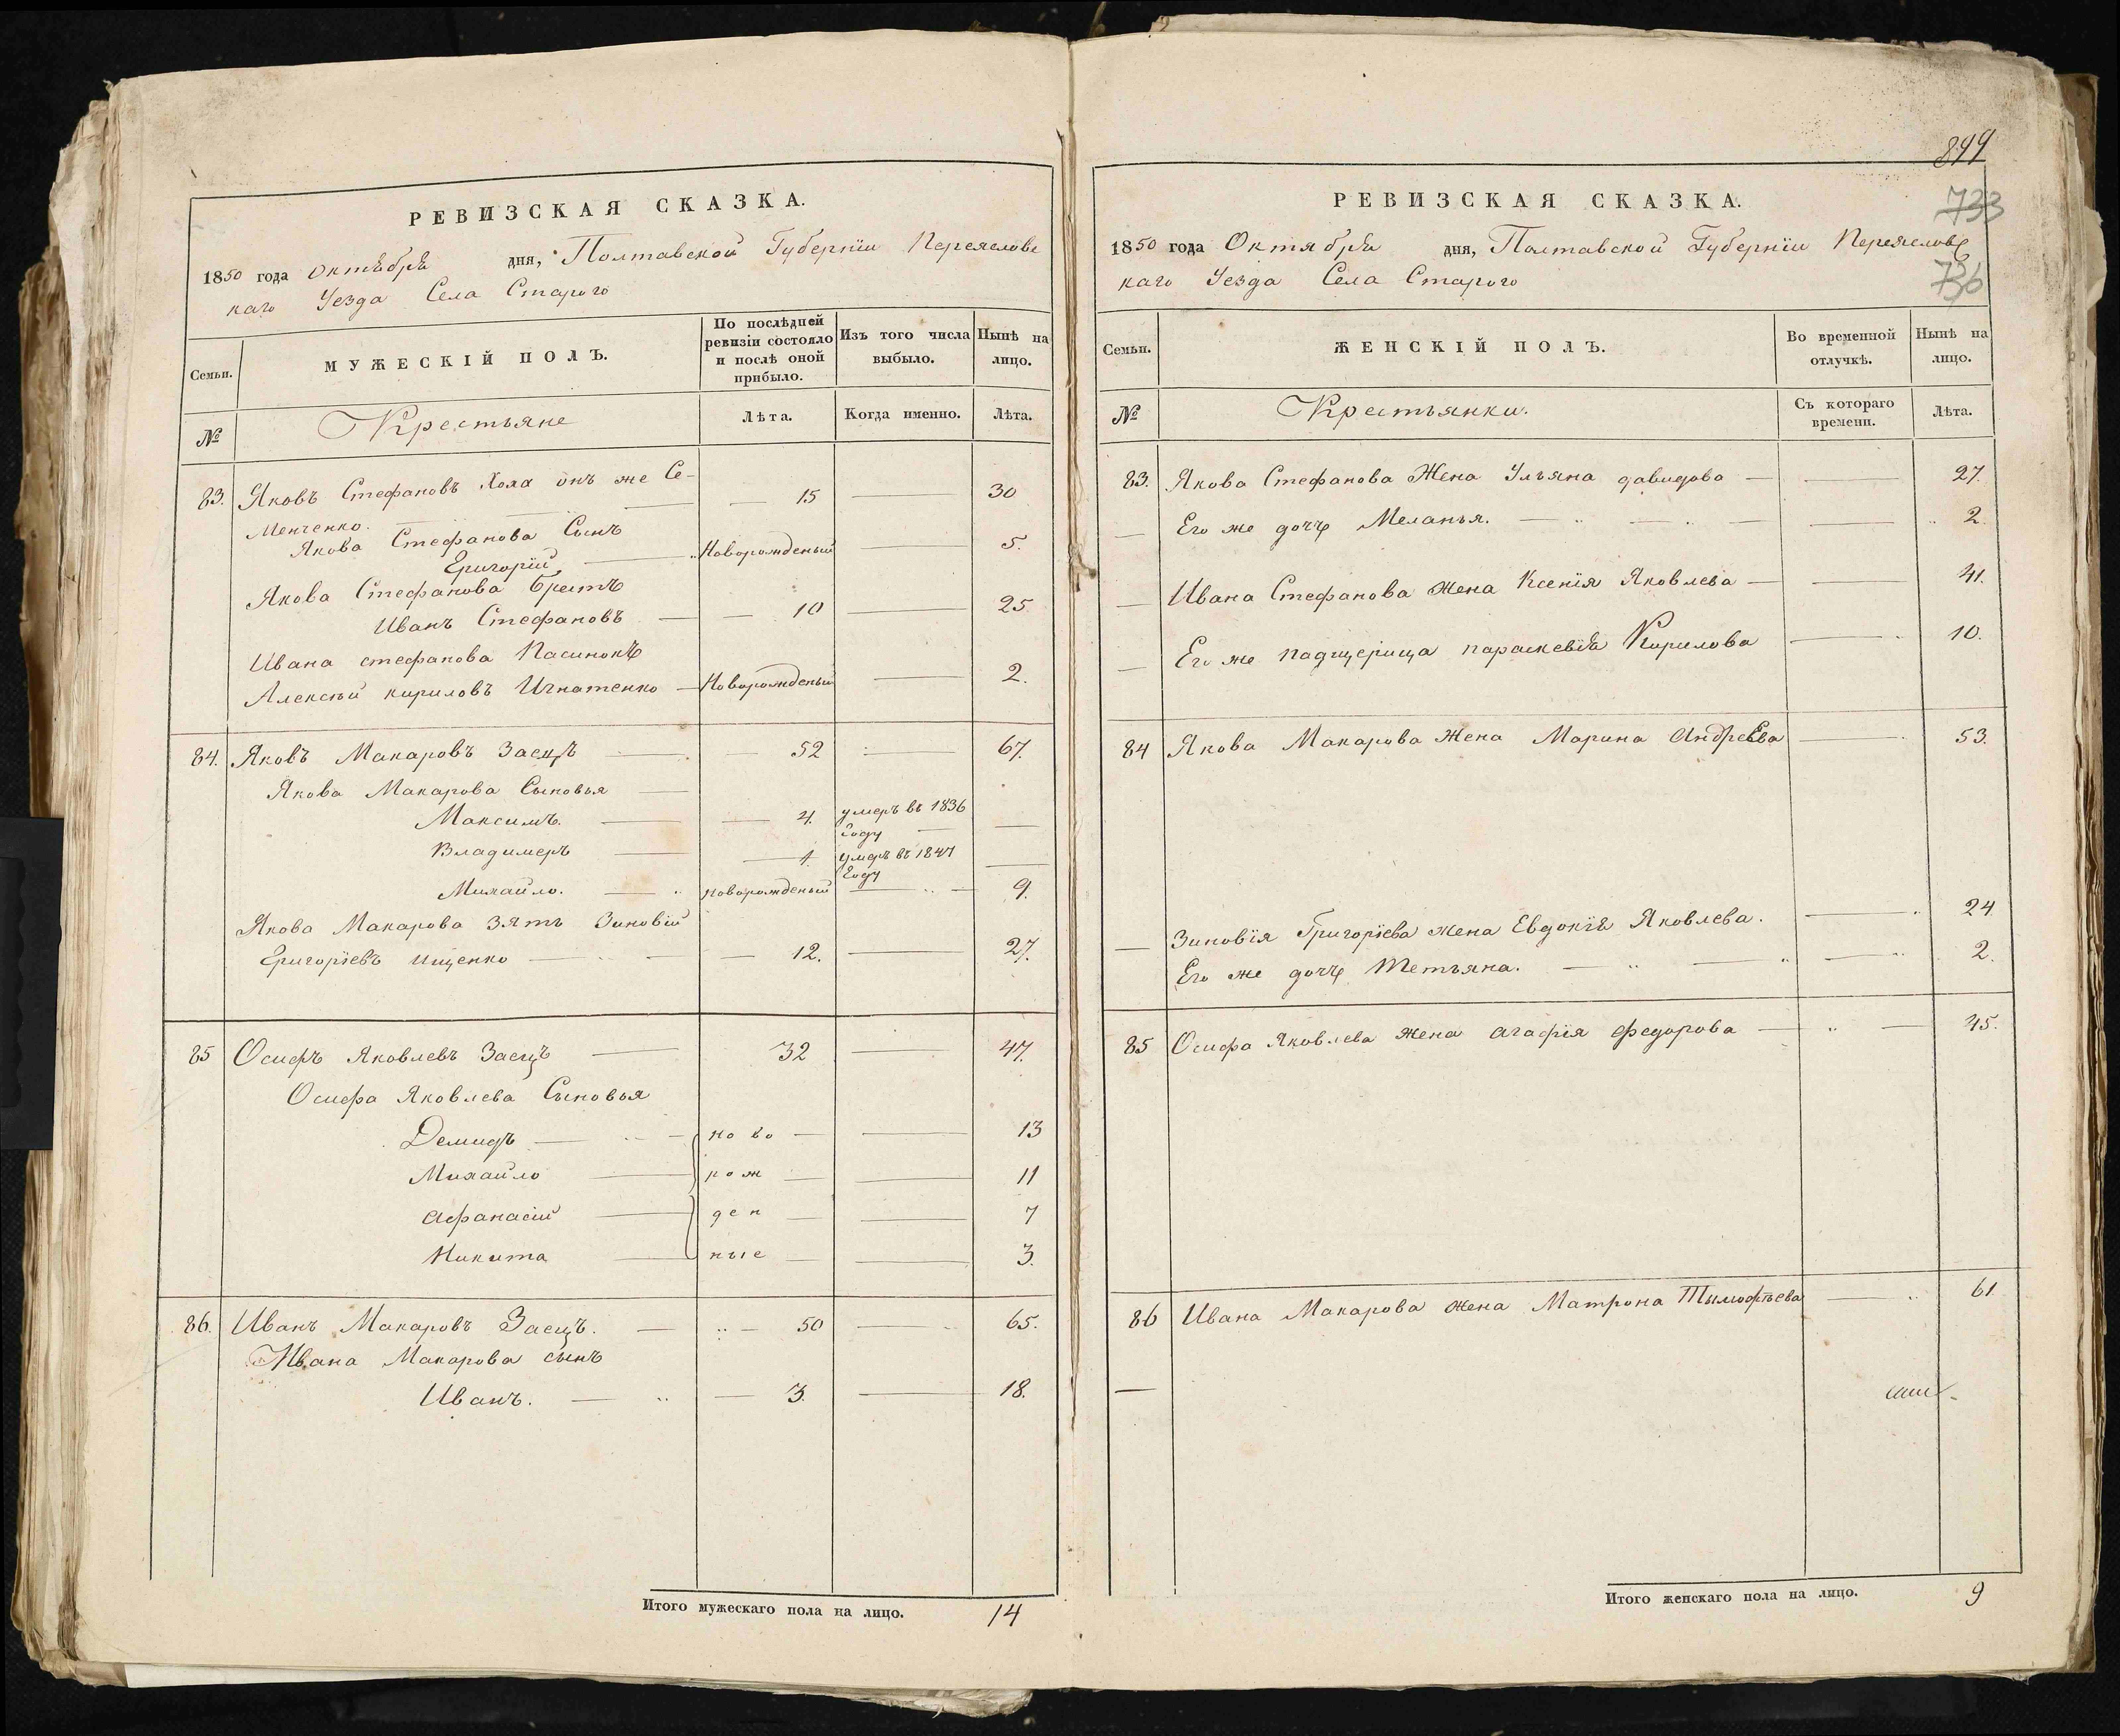 РЕВИЗСКАЯ СКАЗКА.
1850 года Октября дня, Полтавской Губерніи Переяслове
каго Уезда Села Старого
Семьи. МУЖЕСКІЙ ПОЛЪ. По послѣдней ревизіи состояло и послѣ оной прибыло. Изъ того числа выбыло. Нынѣ на лицо.
№ Крестьяне Лѣта. Когда именно. Лѣта.
83. Яковъ Стефановъ Хола онъ же Се- 15 30
менченко.
Якова Стефанова Сынъ
Григорій Новорожденый 5.
Якова Стефанова братъ
Иванъ Стефановъ 10 25
Ивана стефанова Пасинокъ
Алексѣй кириловъ Игнатенко Новорожденый 2.
84. Яковъ Макаровъ Заецъ 52 67.
Якова Макарова Сыновья
Максимъ. 4. умеръ въ 1836
Году
Владимеръ 1. умеръ въ 1847
Году
Михайло. новорожденый 9.
Якова Макарова Зять Зиновій
Григоріевъ Ищенко 12. 27.
85 Осифъ Яковлевъ Заецъ 32 47.
Осифа Яковлева Сыновья
Демидъ но во 13
Михайло рож 11
Афанасій ден 7
Никита ные 3.
86. Иванъ Макаровъ Заецъ. 50 65.
Ивана Макарова сынъ
Иванъ. 3. 18.
Итого мужескаго пола на лицо. 14
899
733
736
РЕВИЗСКАЯ СКАЗКА.
1850 года Октября дня, Полтавской Губерніи Переяслове
каго Уезда Села Старого
Семьи. ЖЕНСКІЙ ПОЛЪ. Во временной отлучкѣ. Нынѣ на лицо.
№ Крестьянки. Съ котораго времени. Лѣта.
83. Якова Стефанова Жена Ульяна давидова 27.
Его же дочъ Меланья. 2.
Ивана Стефанова жена Ксенія Яковлева 41.
Его же падщерица параскевія Кирилова 10.
84 Якова Макарова Жена Марина Андреева 53.
Зиновія Григоріева жена Евдокія Яковлева. 24
Его же дочъ Тетьяна. 2.
85 Осифа Яковлева жена агафія федорова 45.
86 Ивана Макарова жена Матрона Тымофѣева 61
Итого женскаго пола на лицо. 9